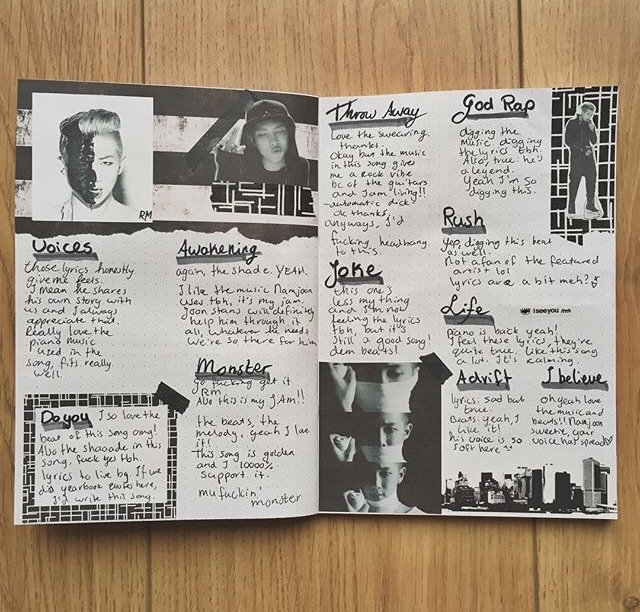 RM
Voices
those lyrics honestly
give me feels.
I mean he shares
his own story with
us and I always
appreciate that.
Really love the
piano music
used in the
song, fits really
well.
Do you I so love the
beat of this song omg!
Also the shaaade in this
song. fuck yes tbh.
lyrics to live by. If we
did yearbook quotes here,
I'd write this song.
Awakening
again, the shade. YEAH.
I like the music Namjoon
uses tbh, it's my jam.
Joon stans will definitely
help him through it
all, whatever he needs
we're so there for him
Monster
go fucking get it
Rm
Also this is my JAM!!
the beats, the
melody, yeah I love
it!
This song is golden
and I 10000%
support it.
mufuckin'
monster
Throw Away
Love the swearing.
thanks.
Okay but the music
in this song gives
me a rock vibe
bc of the guitars
and I am living!!
-automatic dick-
ok thanks.
anyways, I'd
fucking headbang
to this.
Joke
this one's
less my thing
and I'm not
feeling the lyrics
tbh, but it's
still a good song!
dem beats!
God Rap
digging the
music, digging
the lyrics tbh.
Also, true: he's
a legend.
Yeah I'm so
digging this.
Rush
Yep, digging this beat
as well.
Not a fan of the featured
artist lol
lyrics are a bit meh?
Life
i see you
Piano is back yeah!
I feel these lyrics, they're
quite true, like this song
a lot. It's calming.
Adrift
lyrics: sad but
true.
Beats: yeah, I
like it!
his voice is so
soft here
I believe
oh yeah love
the music and
beats!! Namjoon
sweetie, your
voice has spread